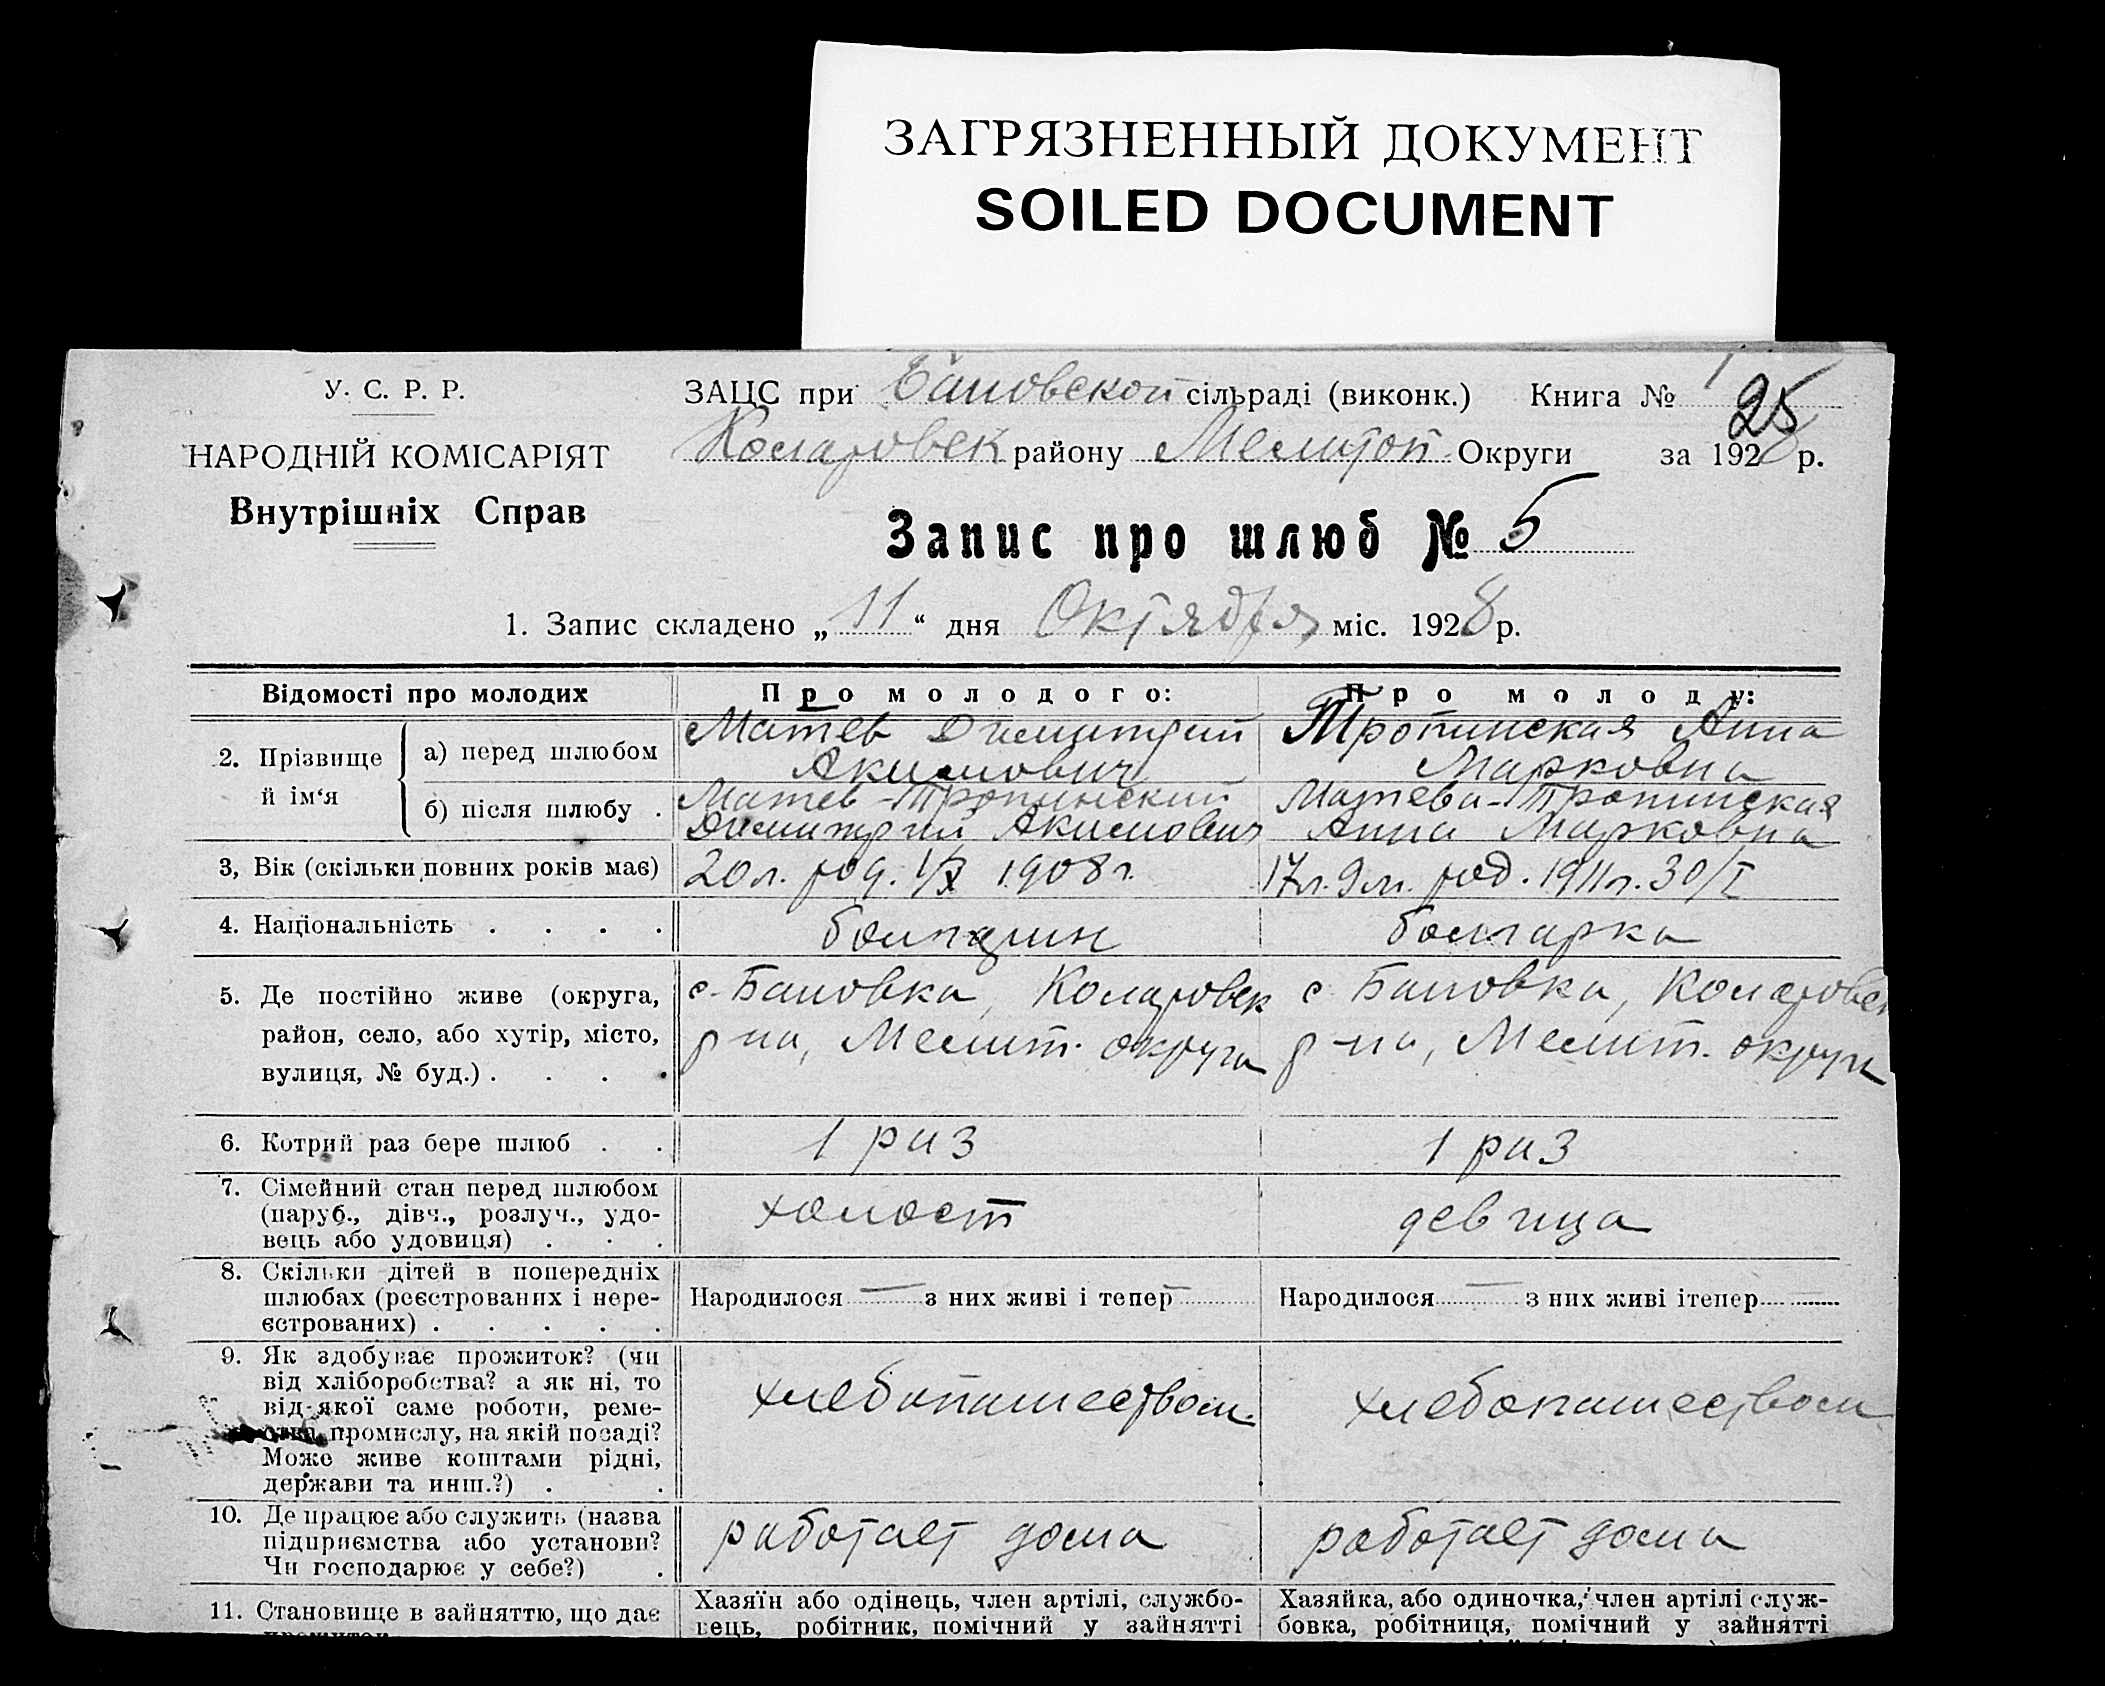 ЗАГРЯЗНЕННЫЙ ДОКУМЕНТ
SOILED DOCUMENT
У. С. Р. Р.
НАРОДНІЙ КОМІСАРІЯТ
Внутрішніх Справ
ЗАЦС при Бановской сільраді (виконк.) Книга № 1
25
Коларовск району Мелитоп Округи за 1928 р.
Запис про шлюб № 5
1. Запис складено „ 11 “ дня Октября міс. 1928 р.
Відомості про молодих
Про молодого:
Про молоду:
2. Прізвище й ім‘я
а) перед шлюбом
Матев Димитрий
Акимович
Тропинская Анна
Марковна
б) після шлюбу .
Матев-Тропинский
Димитрий Акимович
Матева-Тропинская
Анна Марковна
3, Вік (скільки повних років має)
20 л. род. 1/X 1908 г.
17 л. 9 м. род. 1911 г. 30/I
4. Національність . . . .
болгарин
болгарка
5. Де постійно живе (округа,
район, село, або хутір, місто,
вулиця, № буд.) . . . .
с. Бановка, Коларовск
р-на, Мелит. округа
с. Бановка, Коларовск
р-на, Мелит. округи
6. Котрий раз бере шлюб . .
1 раз
1 раз
7. Сімейний стан перед шлюбом
(паруб., дівч., розлуч., удо-
вець або удовиця) . . .
холост
девица
8. Скільки дітей в попередніх
шлюбах (реєстрованих і нере-
єстрованих) . . . . .
Народилося — з них живі і тепер
Народилося — з них живі ітепер
9. Як здобуває прожиток? (чи
від хліборобства? а як ні, то
від якої саме роботи, реме-
ства, промислу, на якій посаді?
Може живе коштами рідні,
держави та инш.?) . .
хлебопашеством
хлебопашеством
10. Де працює або служить (назва
підприємства або установи?
Чи господарює у себе?) .
работает дома
работает дома
11. Становище в зайняттю, що дає
Хазяїн або одінець, член артілі, службо-
вець, робітник, помічний у зайнятті
Хазяйка, або одиночка, член артілі служ-
бовка, робітниця, помічний у зайнятті